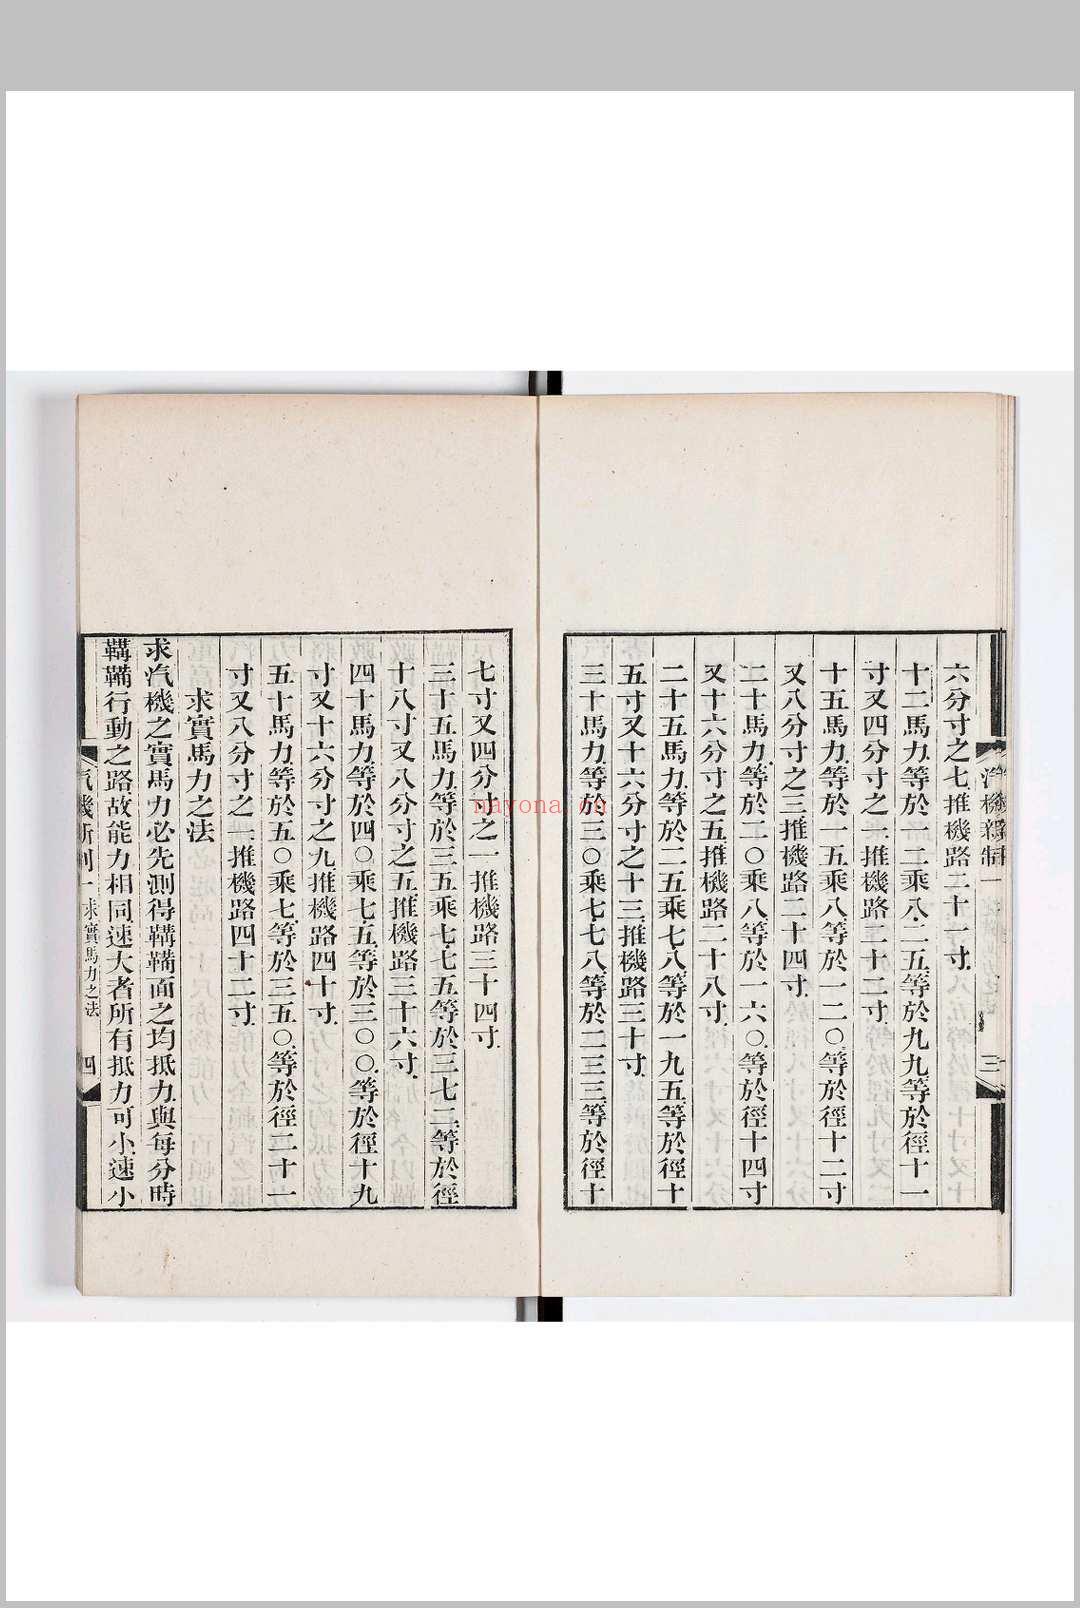 汽機新制一
三
六分寸之七推機路二十一寸
十二馬力等於一二乘八二五等於九九等於徑十一
寸又四分寸之一推機路二十二寸
十五馬力等於一五乘八等於一二〇等於徑十二寸
又八分寸之三推機路二十四寸
二十馬力等於二〇乘八等於一六〇等於徑十四寸
又十六分寸之五推機路二十八寸
二十五馬力等於二五乘七八等於一九五等於徑十
五寸又十六分寸之十三推機路三十寸
三十馬力等於三〇乘七七八等於二三三等於徑十
七寸又四分寸之一推機路三十四寸
三十五馬力等於三五乘七七五等於三七二等於徑
十八寸又八分寸之五推機路三十六寸
四十馬力等於四〇乘七五等於三〇〇等於徑十九
寸又十六分寸之九推機路四十寸
五十馬力等於五〇乘七等於三五〇等於徑二十一
寸又八分寸之一推機路四十二寸
求實馬力之法
求汽機之實馬力必先測得鞲鞴面之均抵力與每分時
鞲鞴行動之路故能力相同速大者所有抵力可小速小
汽機新制一 求實馬力之法 四
nayona.cn